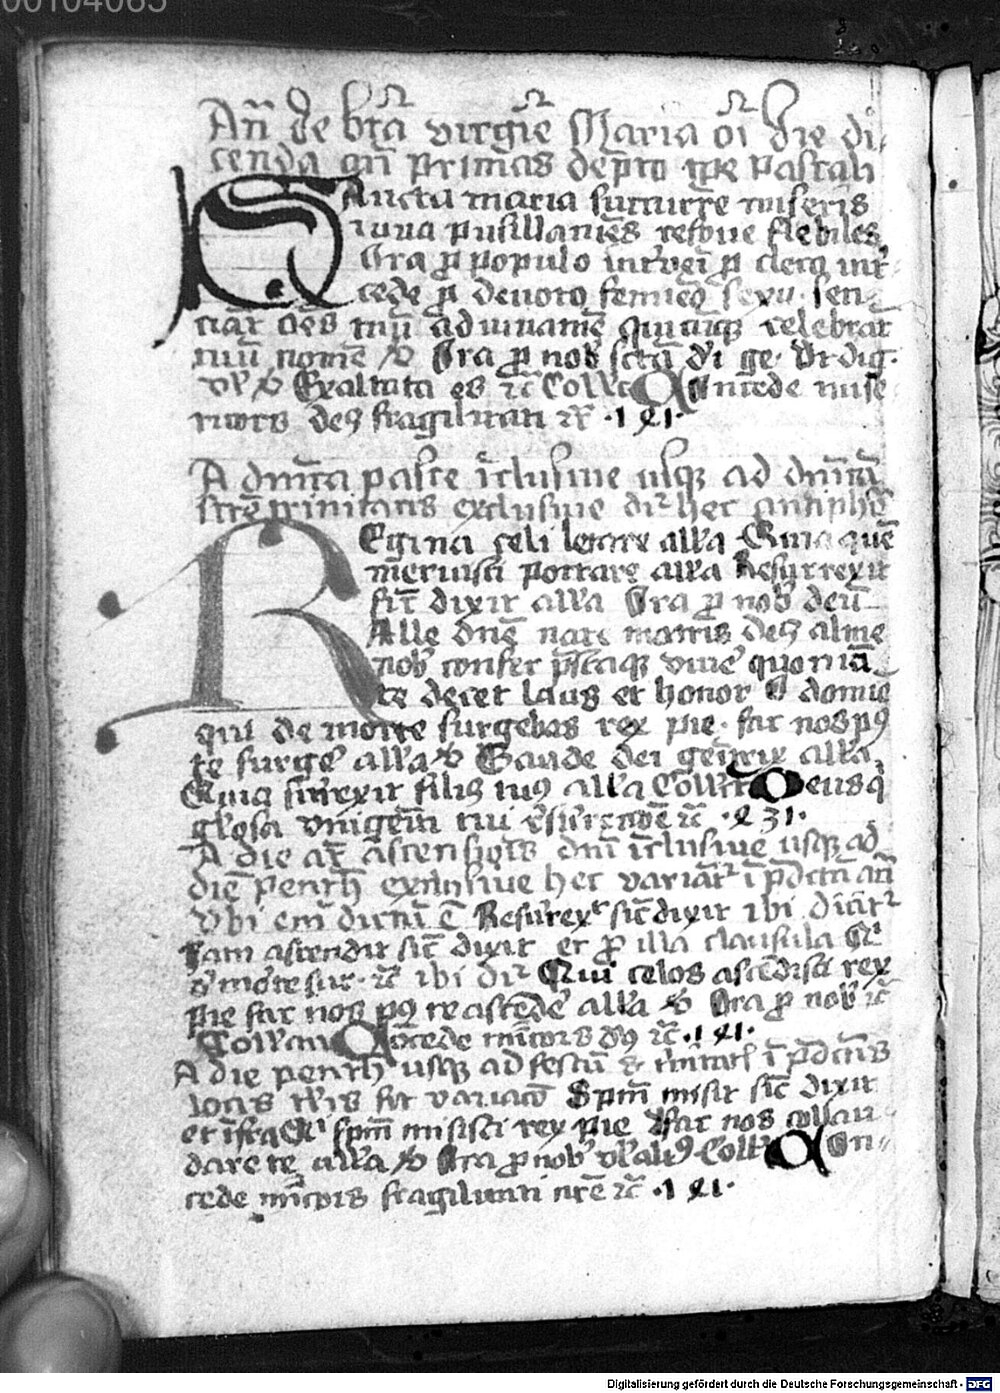 00104065
Añ de btā virgīe Maria oī die di-
cenda añ primas depto tp̄e pascali
SAncta maria succurre miseris
iuva pusillanies refove flebiles
Ora p̄ populo interveī p̄ clero int̄-
cede p̄ devoto femīeo sexu. sen-
ciāt oēs tuū adiuvamē quicūq; celebrāt
tuū nomē V Ora p̄ nob̄ sctā d'i ge. Ut dig.
vl' V Exaltata es rc̄ Collc̄ Concede mise
ricors deus fragilitati rc̄ .141.
A dn̄ica pasce īclusive usq; ad dn̄icā
scte trinitatis exclusive dīr hec antiphō
REgina celi letare all'a Quia quē
meruisti portare all'a Resurrexit
sic̄ dixit all'a Ora p̄ nob̄ deū
Alle dn̄e nate matris deus alme
nob̄ confer p̄staq; vīre quoniā
te decet laus et honor O domīe
qui de morte surgebas rex pie. fac nos p9
te surge' all'a V Gaude dei genitrix all'a
Quia surrexit filius tu9 all'a Collc̄ Deus q'
gl'osa unigeniti tui r̄surrectōe rc̄ .231.
A die aūt ascensiōis dn̄i īclusive usq; ad
diē penth̄ exclusive hec variāt̄ ī p̄dctā añ
Vbi em̄ dictū ē Resurrex̄ sic̄ dixit ibi dicāt̄
Iam ascendit sic̄ dixit et p̄ illa clausula Qi
d' morte sur. rc̄ ibi dīr Qui celos ascēdisti rex
pie fac nos p9 te ascēde' all'a V Ora p̄ nob̄ rc̄
Collcam Concede mīcors d9 rc̄ .141.
A die penth̄ usq; ad festū s trinitatis ī p̄dctis
locis fit variacō Spm̄ misit sic̄ dixit
et īfra Qi spm̄ misisti rex pie Fac nos collau
dare te all'a V Ora p̄ nob̄ Collc̄ Con-
cede mīcors fragilitati nrē rc̄ .141.
Digitalisierung gefördert durch die Deutsche Forschungsgemeinschaft - DFG